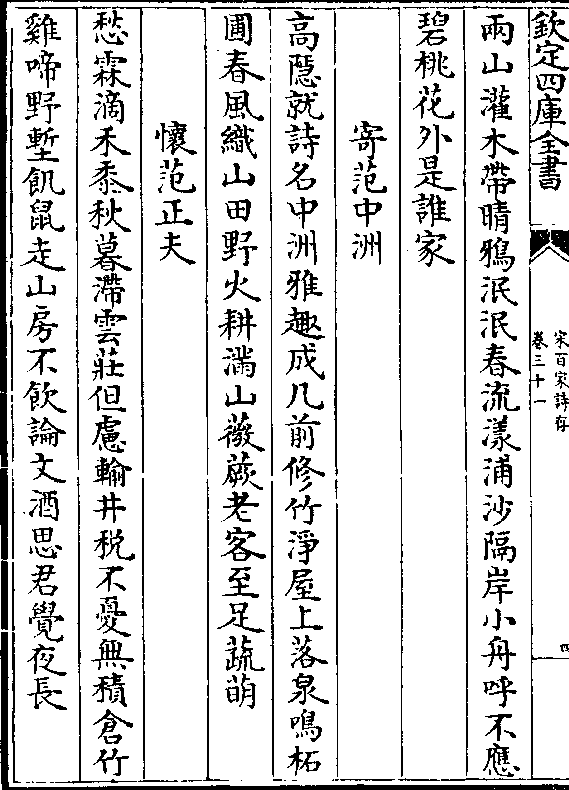 欽定四庫全書
宋百家詩存
卷三十一
四
兩山灌木帶晴鴉泯泯春流漾浦沙隔岸小舟呼不應
碧桃花外是誰家
寄范中洲
高隠就詩名中洲雅趣成几前修竹淨屋上落泉鳴柘
圃春風織山田野火耕滿山薇蕨老客至足蔬萌
懷范正夫
愁霖滴禾黍秋暮滯雲莊但慮輸井税不憂無積倉竹
雞啼野塹飢鼠走山房不飲論文酒思君覺夜長